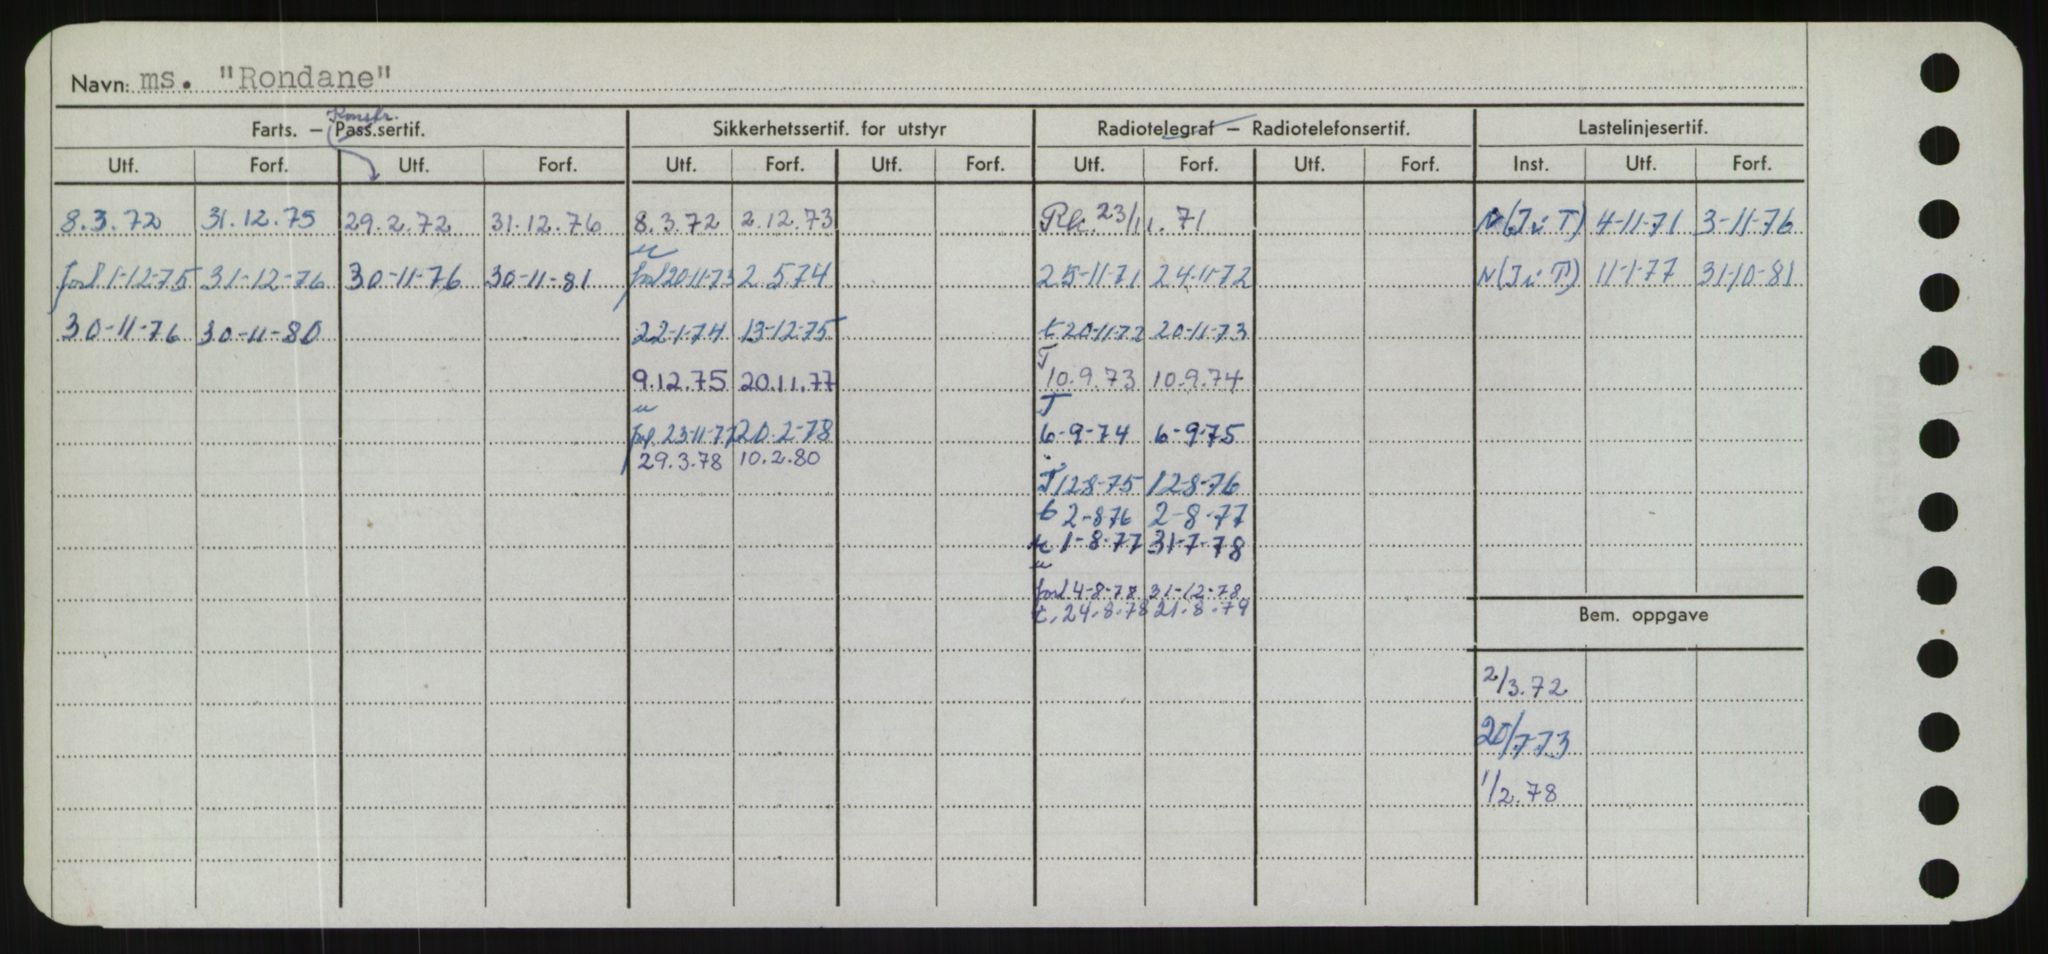 Navn: ms. "Rondane"
Konstr.
Farts. – Pass.sertif. Sikkerhetssertif. for utstyr Radiotelegraf – Radiotelefonsertif. Lastelinjesertif.
Utf. Forf. Utf. Forf. Utf. Forf. Utf. Forf. Utf. Forf. Utf. Forf. Inst. Utf. Forf.
8.3.72 31.12.75 29.2.72 31.12.76 8.3.72 2.12.73 Rk. 23/11.71 N(I i T) 4-11-71 3-11-76
forl 1-12-75 31-12-76 30-11-76 30-11-81 forl 20-11-73 2.5.74 25-11-71 24-11-72 N(I i T) 11-1-77 31-10-81
30-11-76 30-11-80 22-1-74 13-12-75 t 20-11-72 20-11-73
T
9.12.75 20.11.77 10.9.73 10.9.74
T
forl. 23-11-77 20-2-78 6-9-74 6-9-75
29.3.78 10.2.80
T 12-8-75 12-8-76
t 2-8-76 2-8-77
t 1-8-77 31-7-78
forl 4-8-78 31-12-78
t. 24.8.78 21.8.79
Bem. oppgave
2/3.72
20/7.73
1/2.78